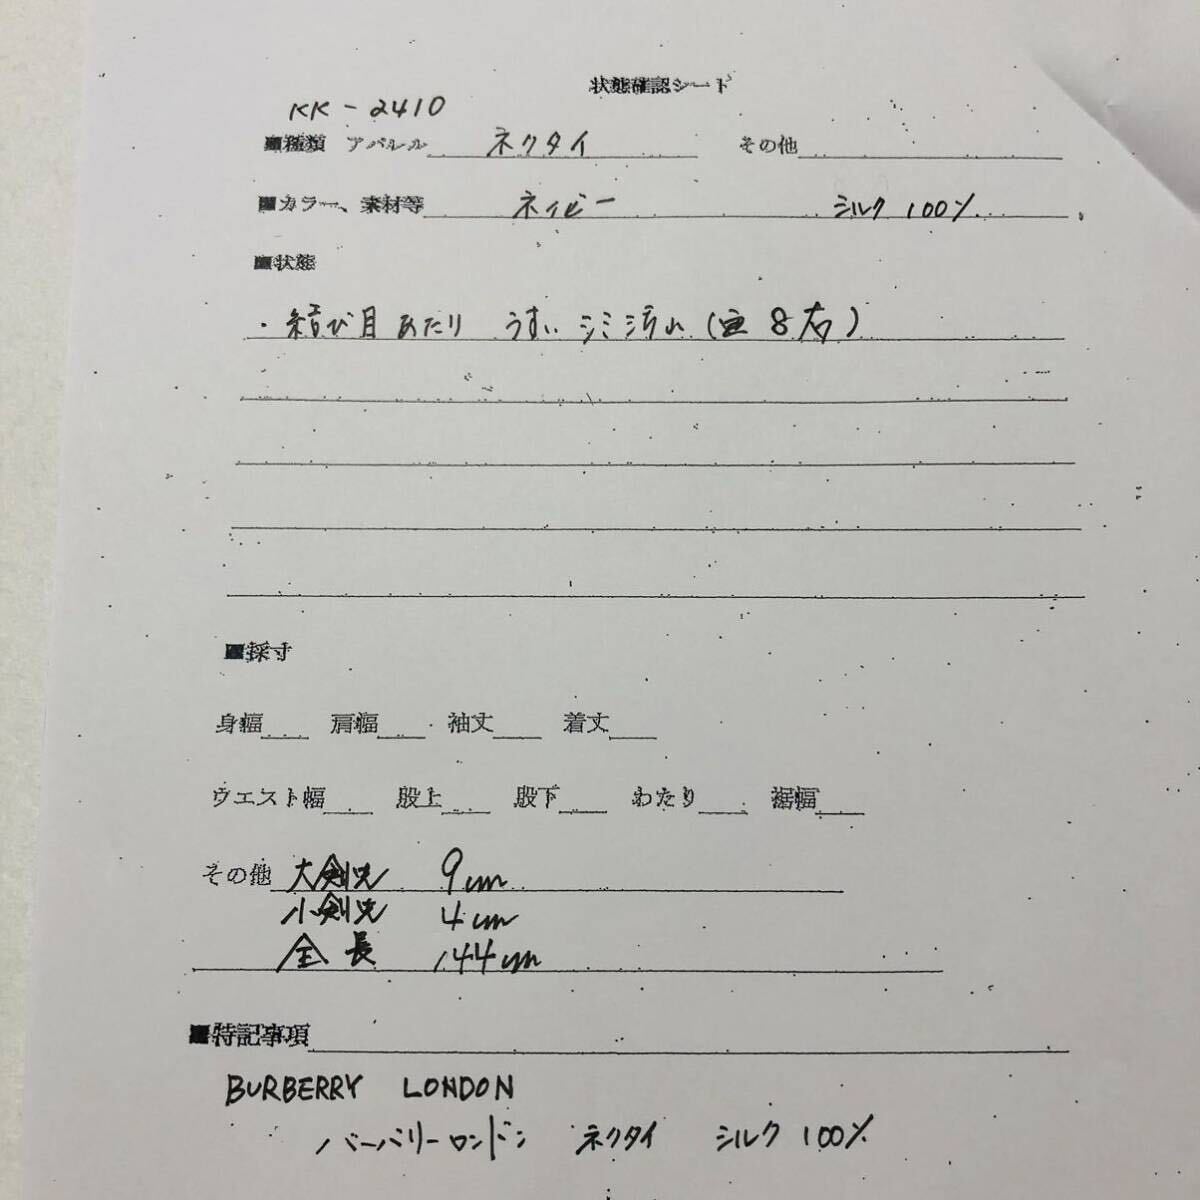 状態確認シート
KK-2410
■種類 アパレル ネクタイ その他
■カラー、素材等 ネイビー シルク 100%
■状態
・結び目あたり うすい シミ 汚れ ( 8 )
■採寸
身幅 肩幅 袖丈 着丈
ウエスト幅 股上 股下 わたり 裾幅
その他 大剣先 9cm
小剣先 4cm
全長 144cm
■特記事項
BURBERRY LONDON
バーバリーロンドン ネクタイ シルク 100%